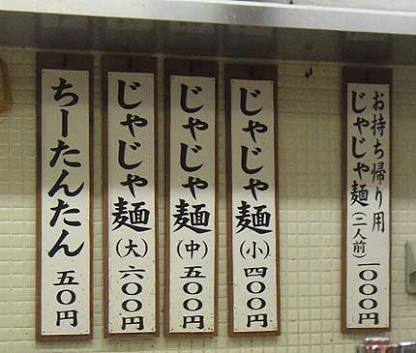 お持ち帰り用
じゃじゃ麺(二人前)一〇〇〇円
じゃじゃ麺(小)四〇〇円
じゃじゃ麺(中)五〇〇円
じゃじゃ麺(大)六〇〇円
ちーたんたん 五〇円